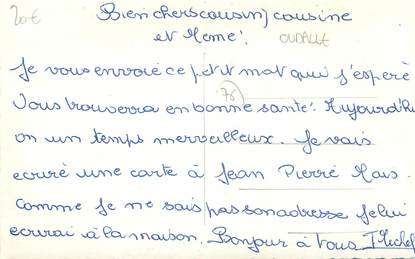 20€
Bien chers cousin, cousine
et Meme! OUDALLE
Je vous envoie ce petit mot qui j'espere
Vous trouverra en bonne santé. Aujourd'hui
(76)
on un temps merveilleux. Je vais
ecuré une carte à Jean Pierré Mais
Comme je ne sais pas son adresse je lui
ecrirai à la maison. Bonjour à tous